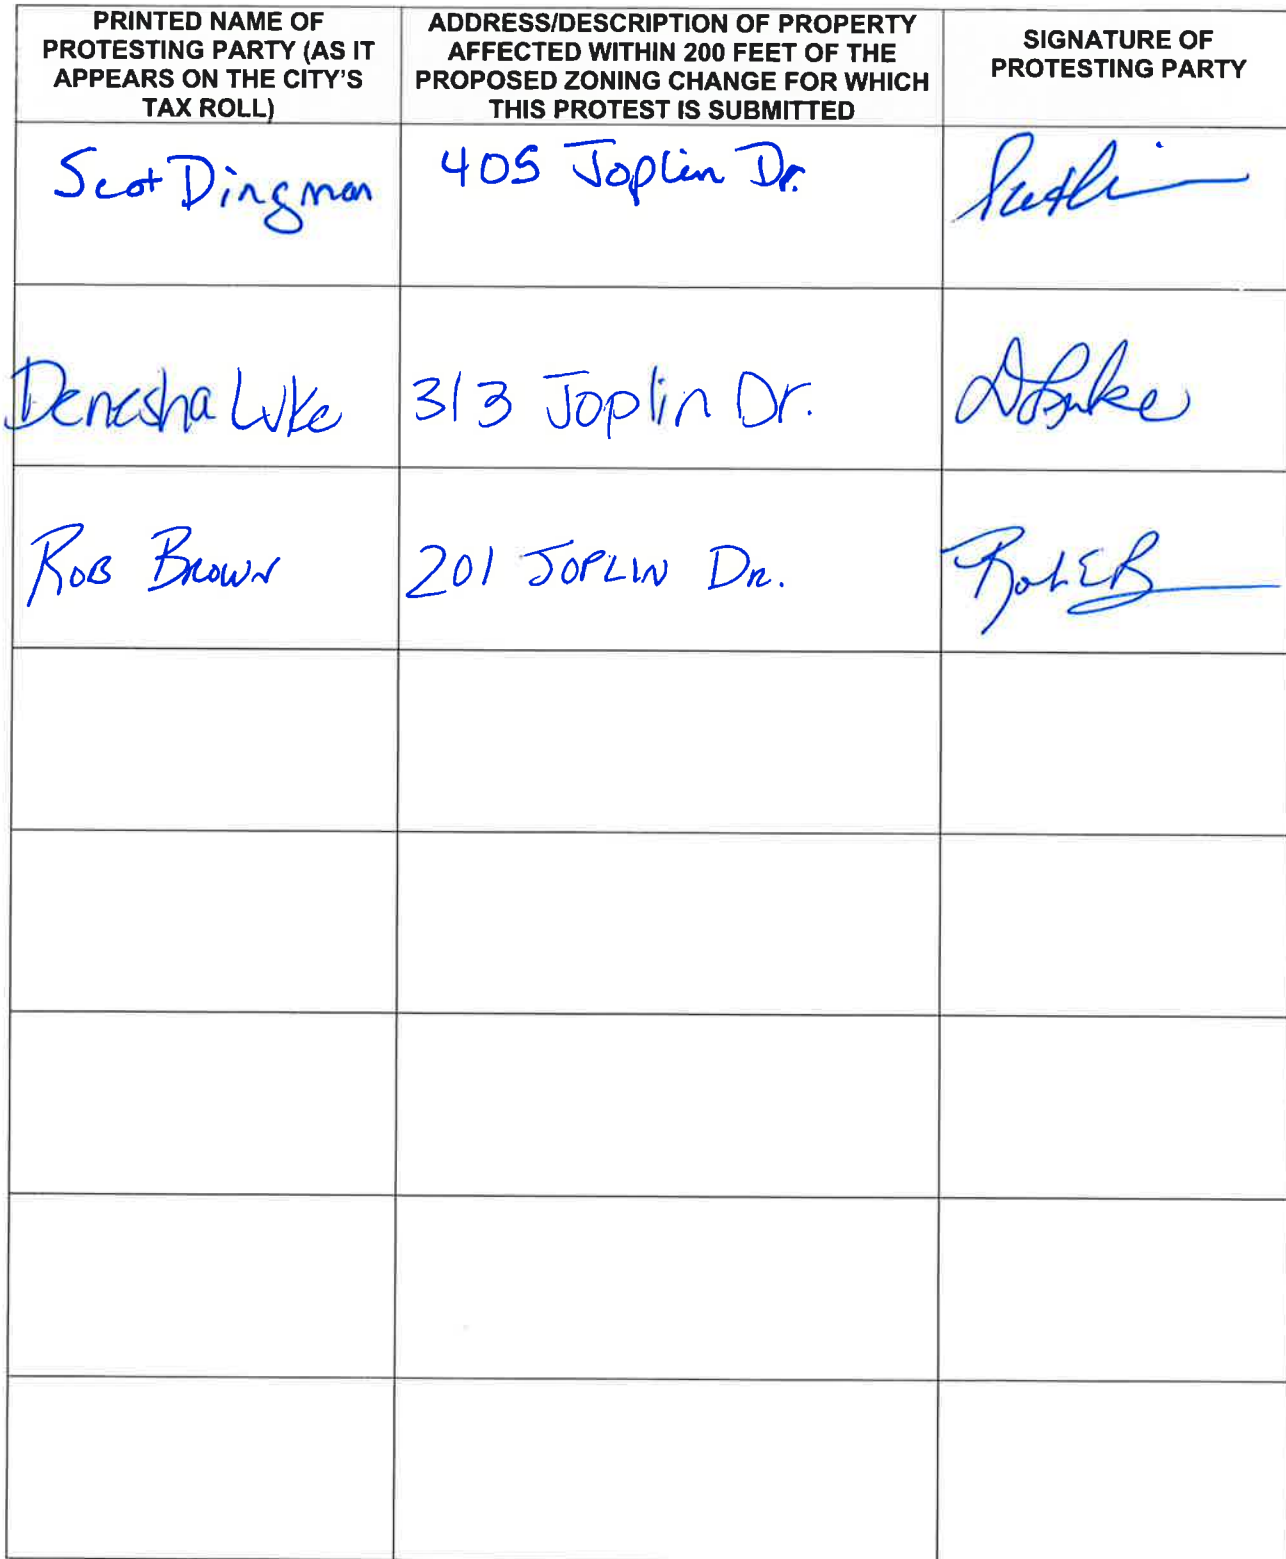 PRINTED NAME OF
PROTESTING PARTY (AS IT
APPEARS ON THE CITY'S
TAX ROLL)
ADDRESS/DESCRIPTION OF PROPERTY
AFFECTED WITHIN 200 FEET OF THE
PROPOSED ZONING CHANGE FOR WHICH
THIS PROTEST IS SUBMITTED
SIGNATURE OF
PROTESTING PARTY
Scot Dingman
405 Joplin Dr.
Denesha Luke
313 Joplin Dr.
DLuke
ROB BROWN
201 JOPLIN DR.